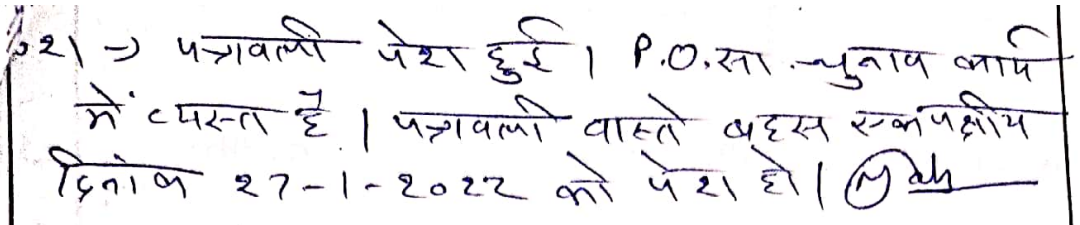 21 → पत्रावली पेश हुई। P.O. सा. चुनाव कार्य
में व्यस्त है। पत्रावली वास्ते बहस एकपक्षीय
दिनांक 27-1-2022 को पेश हो।